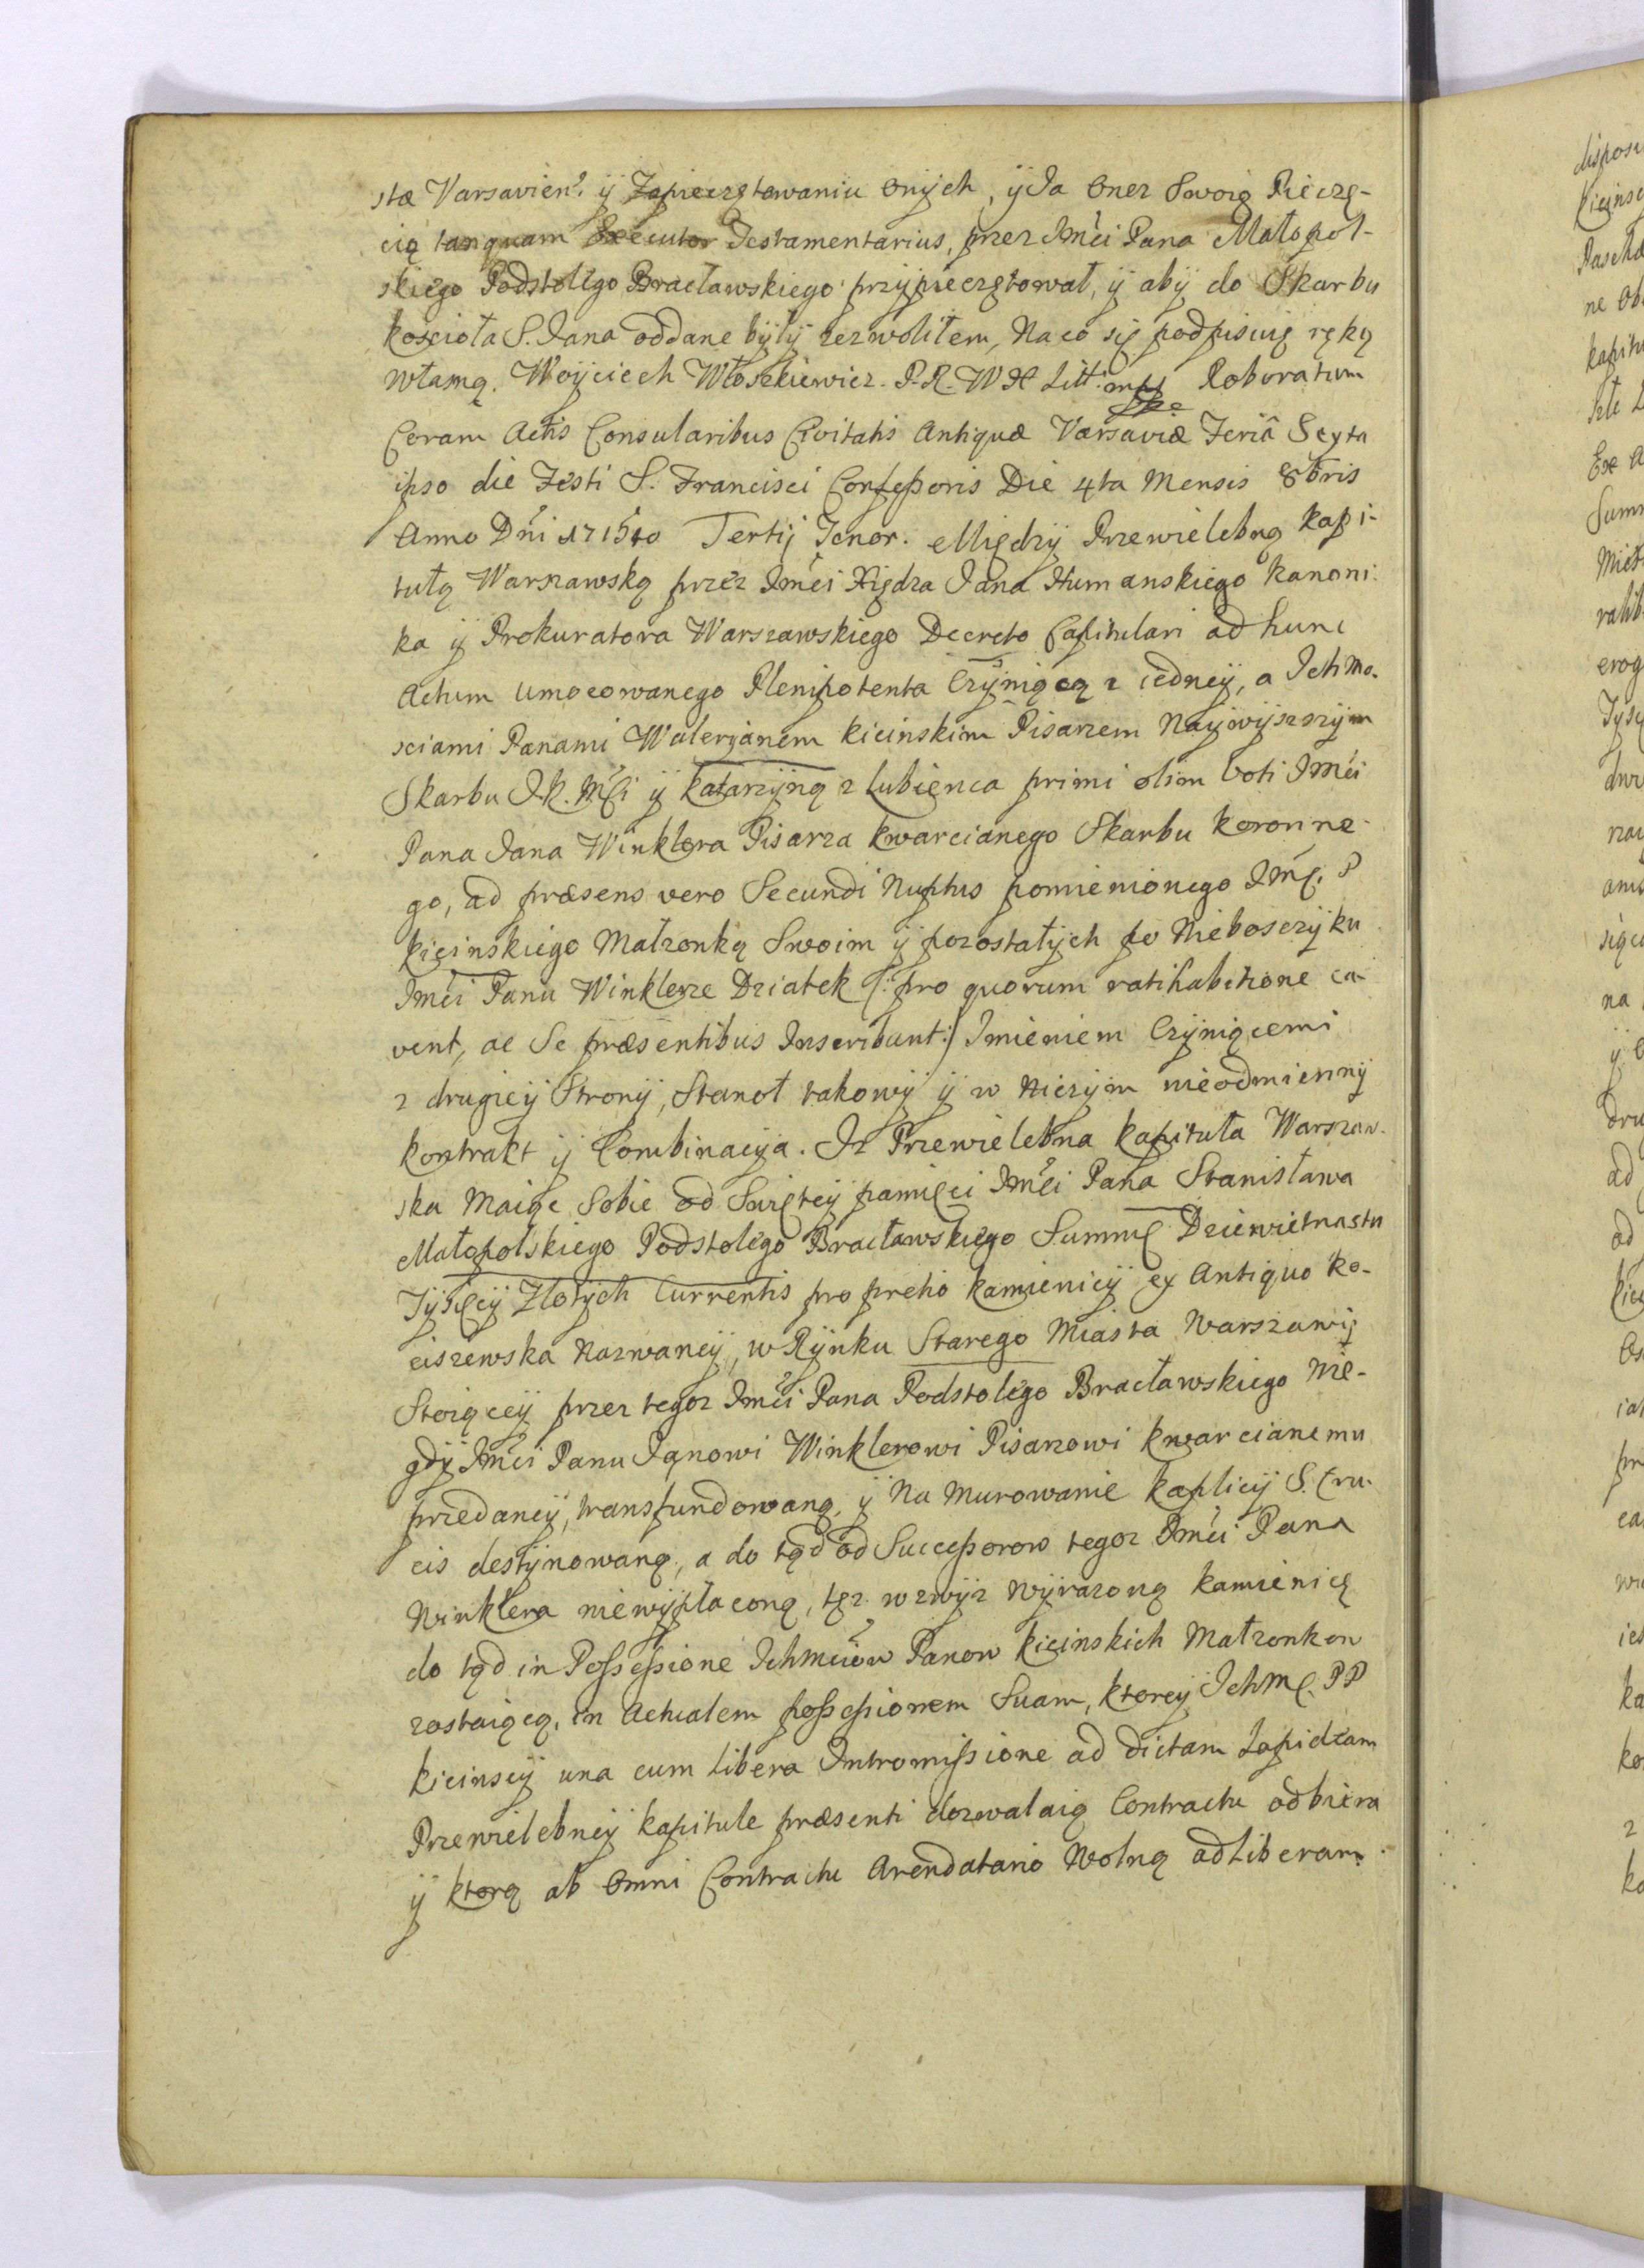 stæ Varsavien: ÿ Zapieczętowaniu onÿch, ÿ Ja Onez Swoią Pieczę-
cią tanquam Executor Testamentarius, przez Jmci Pana Małopol-
skiego Podstolego Bracławskiego przÿpieczętował, ÿ abÿ do Skarbu
kościoła S. Jana oddane bÿłÿ zezwoliłem, Na co się podpisuię ręką
własną. Woÿciech Włoszkiewicz. P. R. W X Litt: mp Roboratum
Coram Actis Consularibus Civitatis Antiquæ Varsaviæ Feriâ Sexta
ipso die Festi S. Francisci Confeßoris Die 4ta Mensis 8bris
Anno Dni 1715to Tertij Tenor. Międzÿ Przewielebną kapi-
tułą Warszawską przez Jmci Xiędza Jana Humanskiego kanoni-
ka ÿ Prokuratora Warszawskiego Decreto Capitulari ad hunc
Actum umocowanego Plenipotenta Czÿniącą z iedneÿ, a Ichmo-
sciami Panami Walerÿanem kicinskim Pisarzem Naÿwÿzszÿm
Skarbu J.K. Mści ÿ katarzÿną z Lubieńca primi olim Voti Jmci
Pana Jana Winklera Pisarza kwarcianego Skarbu koronne-
go, ad præsens vero Secundi Nuptus pomienionego JMę. P
kicinskiego Małzonką Swoim ÿ pozostałÿch po Nieboszczÿku
Jmci Panu Winklerze Dziatek (: pro quorum ratihabitione ca-
vent, ac Se præsentibus Inscribunt :) Imieniem Czÿniącemi
z drugieÿ Stronÿ, Stanoł takowÿ ÿ w niczÿm nieodmiennÿ
kontrakt ÿ Combinacÿa. Iz Przewielebna kapituła Warszaw-
ska Maiąc Sobie od Swięteÿ pamięci Jmci Pana Stanisława
Małopolskiego Podstolego Bracławskiego Summę Dziewietnastu
Tÿsięcÿ Złotÿch Currentis pro pretio kamienicÿ ex Antiquo ko-
ciszewska Nazwaneÿ, w Rÿnku Starego Miasta Warszawÿ
Stoiąceÿ przez tegoz Jmci Pana Podstolego Bracławskiego Nie-
gdÿ Jmci Panu Janowi Winklerowi Pisarzowi kwarcianemu
przedaneÿ, transfundowaną, ÿ Na Murowanie kaplicÿ S. Cru-
cis destÿnowaną, a do tąd od Succeßorow tegoz Jmci Pana
Winklera niewÿpłaconą, tęz wzwÿz wÿrazoną kamienicę
do tąd in Poßeßione Ichmciow Panow kicinskich Małzonkow
zostaiącą, in Actualem poßeßionem Suam, ktoreÿ Ichmę. PP
kicinscÿ una cum libera Intromißione ad dictam Lapideam
Przewielebneÿ kapitule præsenti dozwalaią Contractu odbiera
ÿ ktorą ab Omni Contractu Arendatario Wolną ad Liberam